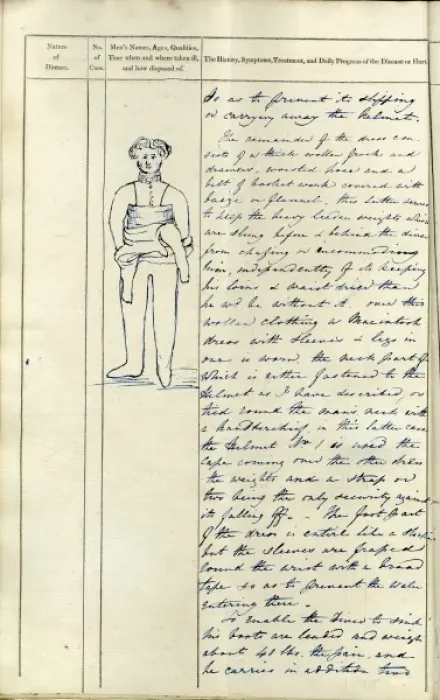 Nature
of
Disease.
No.
of
Case.
Men's Names, Ages, Qualities,
Time when and where taken ill,
and how disposed of.
The History, Symptoms, Treatment, and Daily Progress of the Disease or Hurt.
So as to prevent its slipping
or carrying away the helmet.
The remainder of the dress con-
sists of a thick wollen frock and
drawers, worsted hose and a
belt of basket work covered with
baize or flannel, this latter serves
to keep the heavy leaden weights which
are slung before & behind the diver
from chafing or incommoding
him, independently of its keeping
his loins & waist dried than
he wd be without it. over this
wollen clothing a Macintosh
dress with sleeves & legs in
one is worn, the neck part of
which is either fastened to the
Helmet as I have described, or
tied round the man's neck with
a handkerchief, in this latter case
the Helmet No 1 is used the
cape coming over the other dress
the weights and a strap or
two being the only security against
its falling off. The foot part
of the dress is entire like a stockin
but the sleeves are
round the wrist with a broad
tape so as to prevent the water
entering there.
To enable the Diver to sink
his boots are leaded and weigh
about 40 lbs. the pair, and
he carries in addition two